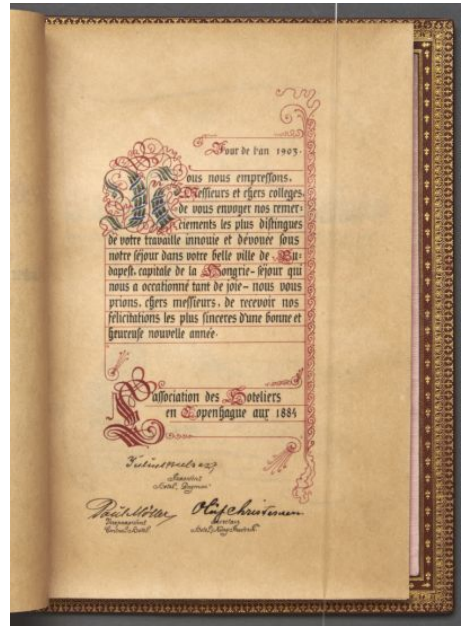 Jour de l'an 1903.
Nous nous empressons,
Messieurs et chers colleges,
de vous envoyer nos remer=
ciements les plus distingues
de votre travaille innouie et dévouée sous
notre séjour dans votre belle ville de Bu=
dapest, capitale de la Hongrie – séjour qui
nous a occationné tant de joie – nous vous
prions, chers messieurs, de recevoir nos
félicitations les plus sinceres d'une bonne et
heureuse nouvelle année.
L'association des Hoteliers
en Copenhague aux 1884
President
Hotel
Paul Möller
Olaf Christensen
Vicepresident
Secretary
Central Hotel
Hotel